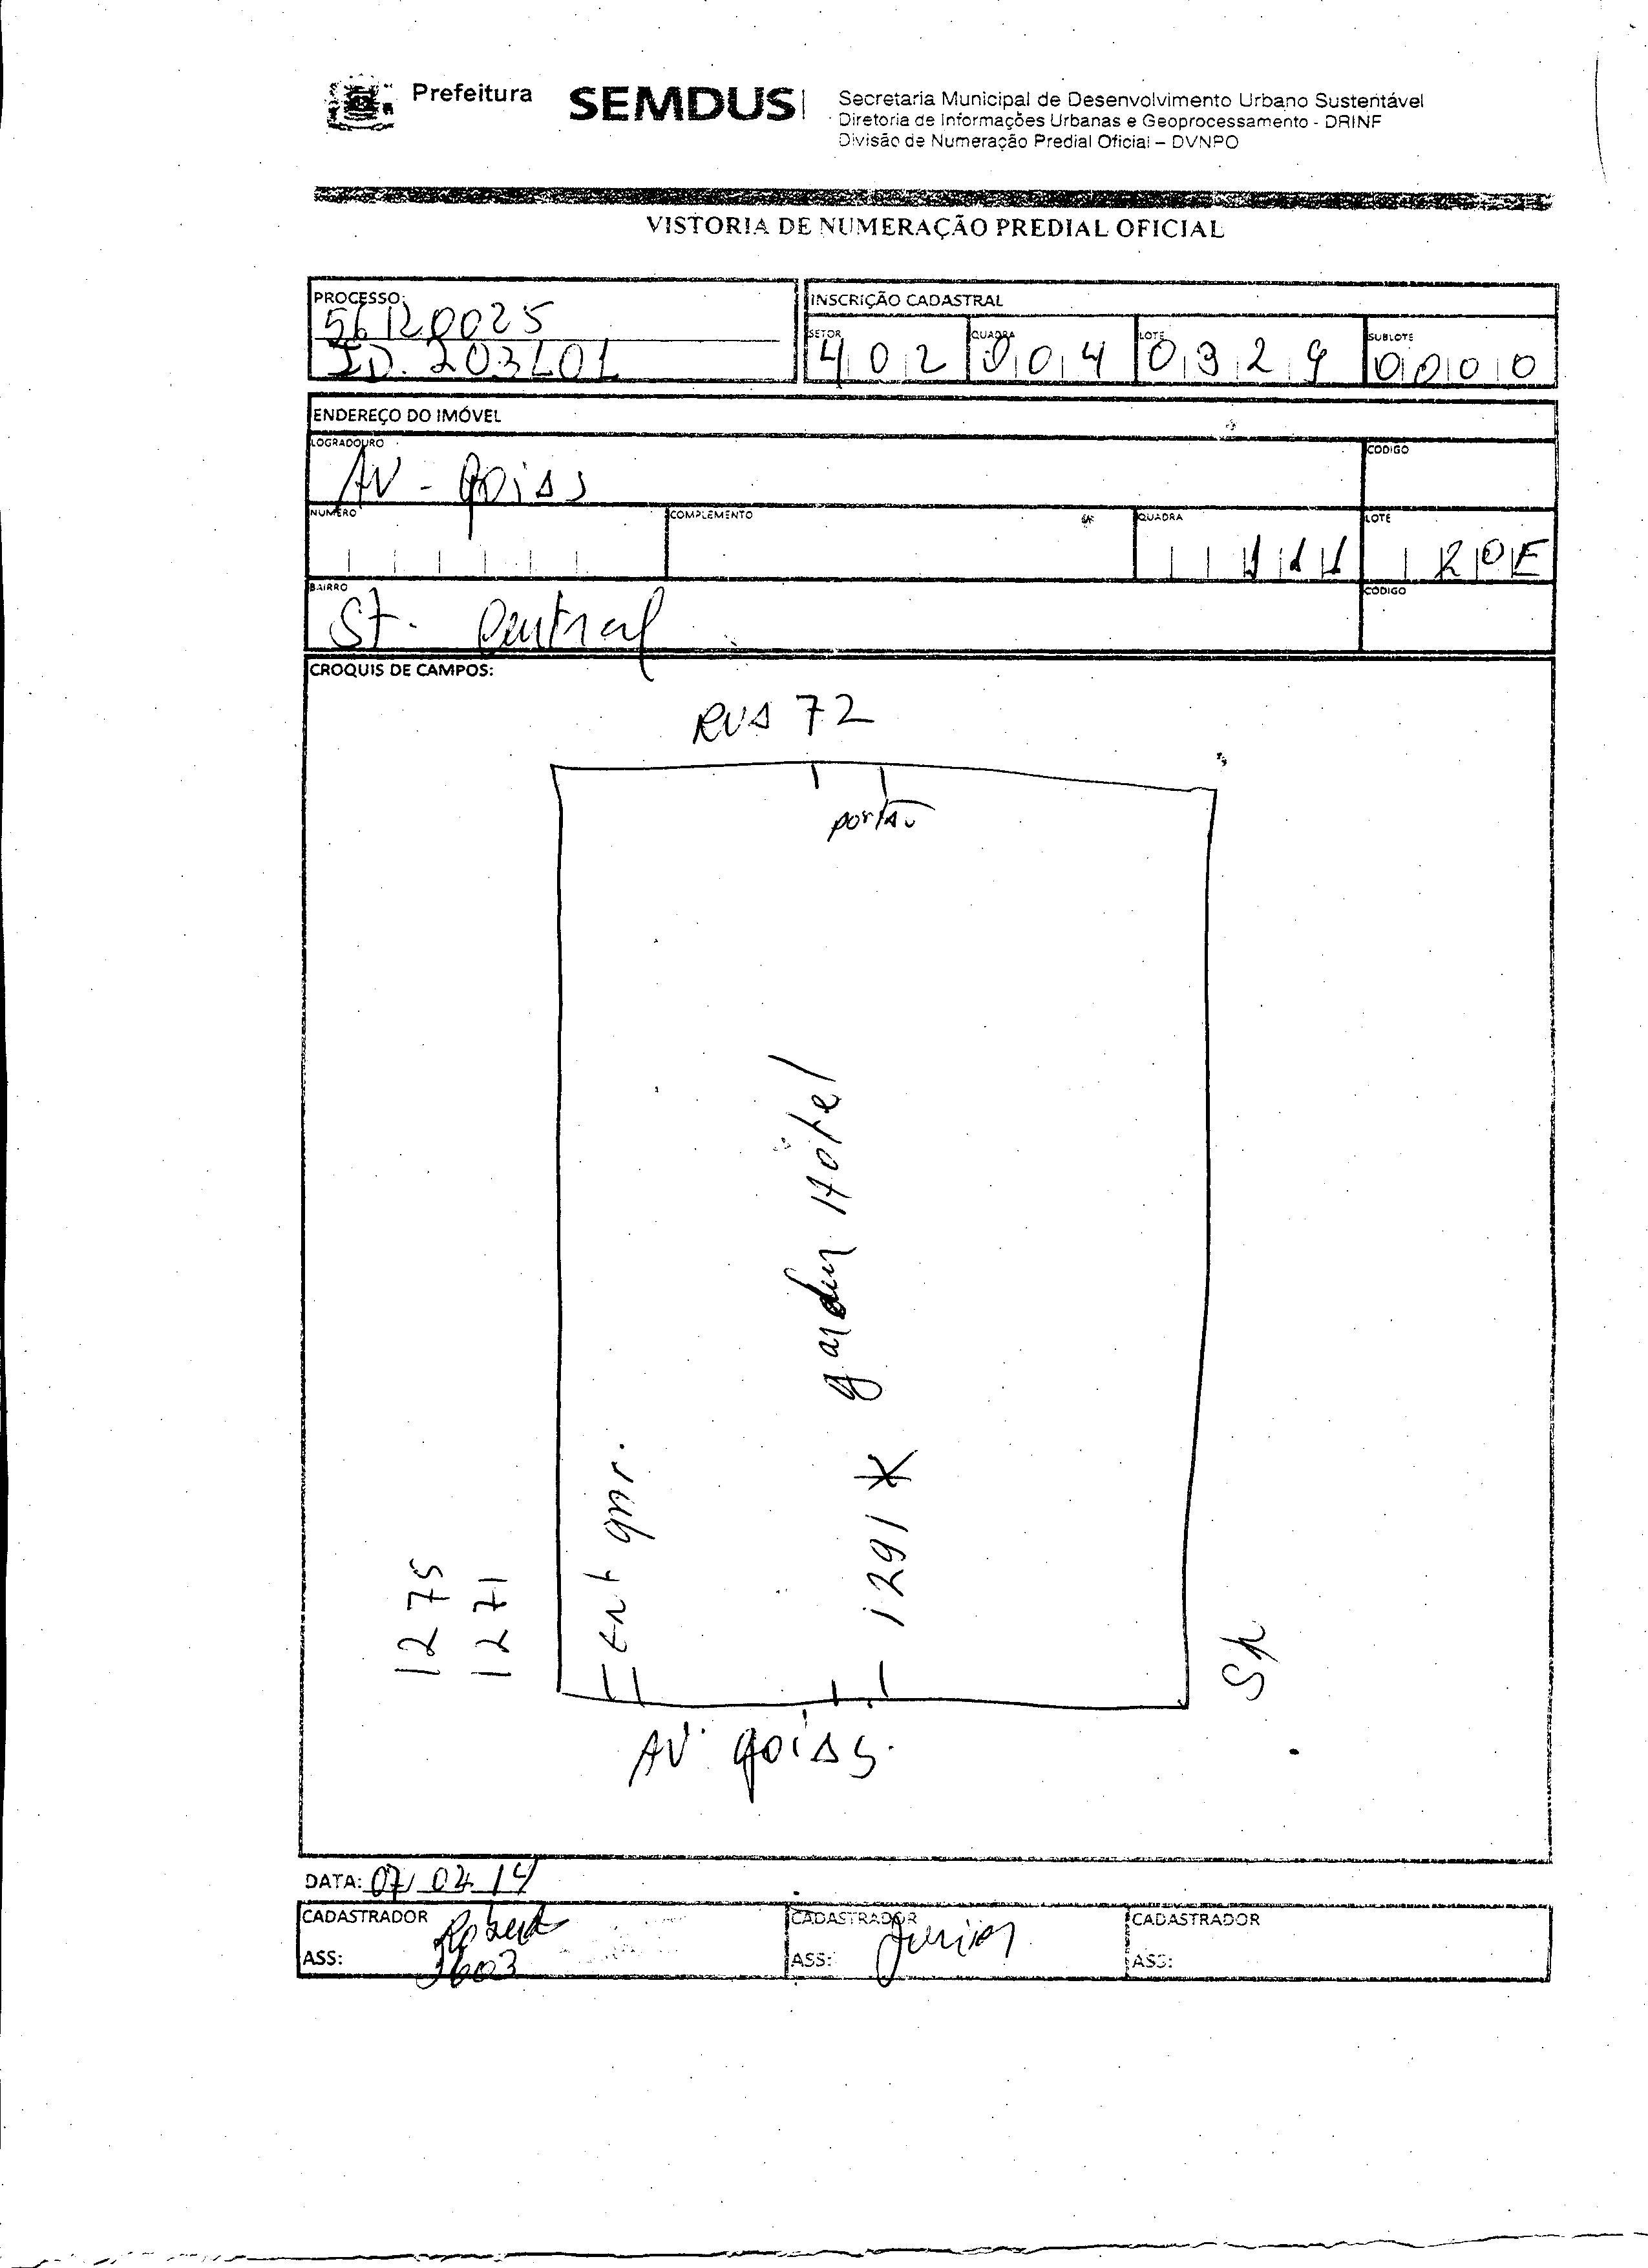 Prefeitura SEMDUS
Secretaria Municipal de Desenvolvimento Urbano Sustentável
Diretoria de Informações Urbanas e Geoprocessamento - DRINF
Divisão de Numeração Predial Oficial – DVNPO
VISTORIA DE NUMERAÇÃO PREDIAL OFICIAL
PROCESSO:
INSCRIÇÃO CADASTRAL
SETOR 402 QUADRA 004 LOTE 0329 SUBLOTE 0000
ENDEREÇO DO IMÓVEL
LOGRADOURO
CODIGO
AV - goiás
NUMERO
COMPLEMENTO
QUADRA
LOTE
111 20E
BAIRRO
CODIGO
St. Central
CROQUIS DE CAMPOS:
RUA 72
portão
garden Hotel
1291
Ent
1275
1271
AV. goiás.
DATA: 07/02/14
CADASTRADOR
Robert
ASS:
3603
CADASTRADOR
Junior
ASS:
CADASTRADOR
ASS: